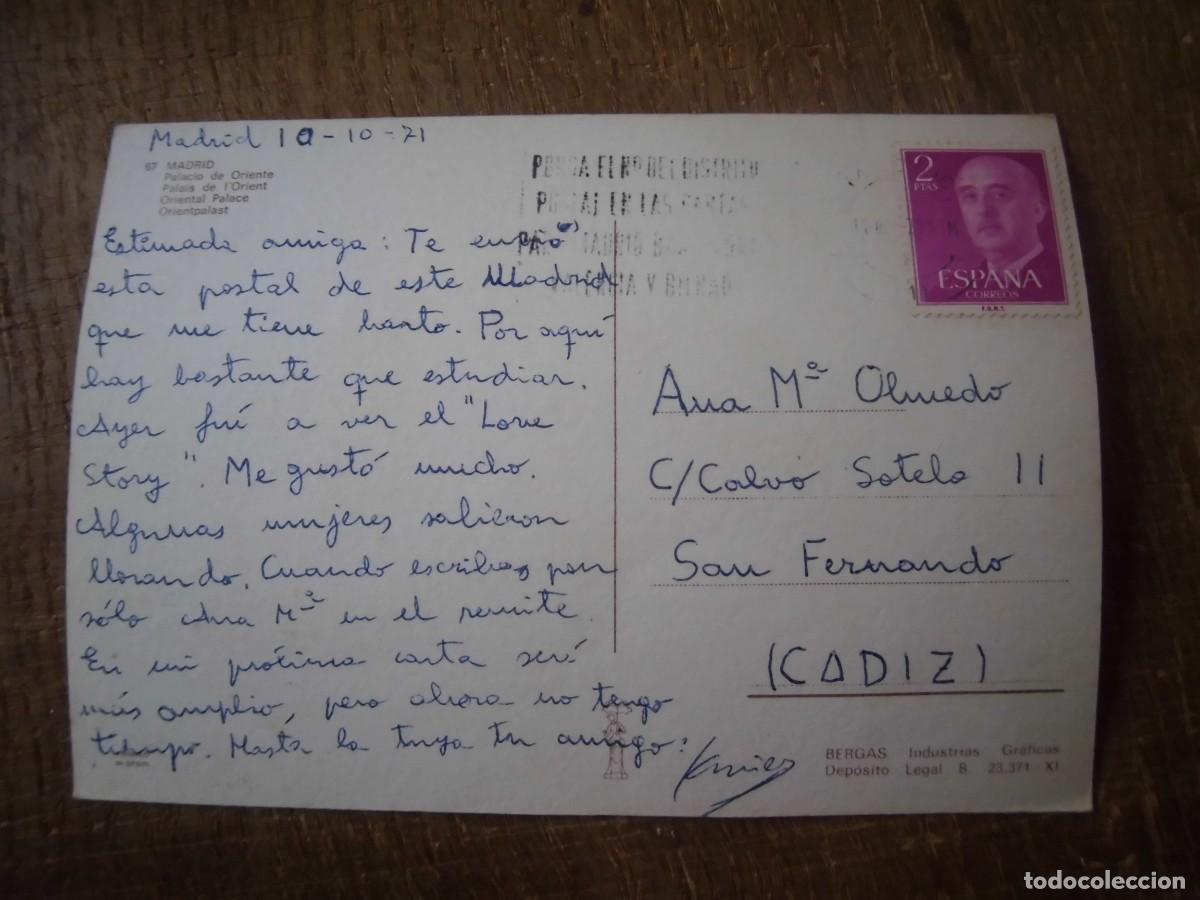 Madrid 10-10-71
67 MADRID
Palacio de Oriente
Palais de l'Orient
Oriental Palace
Orientpalast
PONGA EL Nº DEL DISTRITO
POSTAL EN LAS CARTAS
PARA MADRID
VALENCIA Y BILBAO
2
PTAS
ESPAÑA
CORREOS
F.N.M.T.
Estimada amiga: Te envío
esta postal de este Madrid
que me tiene harto. Por aquí
hay bastante que estudiar.
Ayer fuí a ver el "Love
Story". Me gustó mucho.
Algunas mujeres salieron
llorando. Cuando escribas pon
sólo Ana Mª en el remite.
En mi próxima carta seré
más amplio, pero ahora no tengo
tiempo. Hasta la tuya tu amigo:
Ana Mª Olmedo
C/Calvo Sotelo 11
San Fernando
(CADIZ)
BERGAS Industrias Gráficas
Depósito Legal B. 23.371 XI
todocoleccion